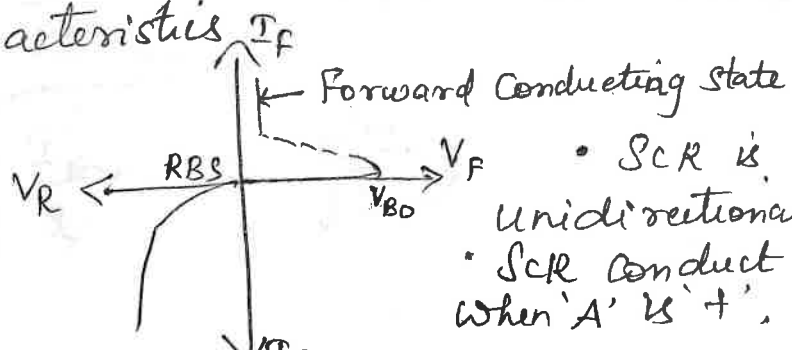 acteristics I_F
Forward Conducting State
RBS
V_R
V_F
V_BO
• SCR is
unidirectiona
• SCR conduct
When 'A' is '+'.